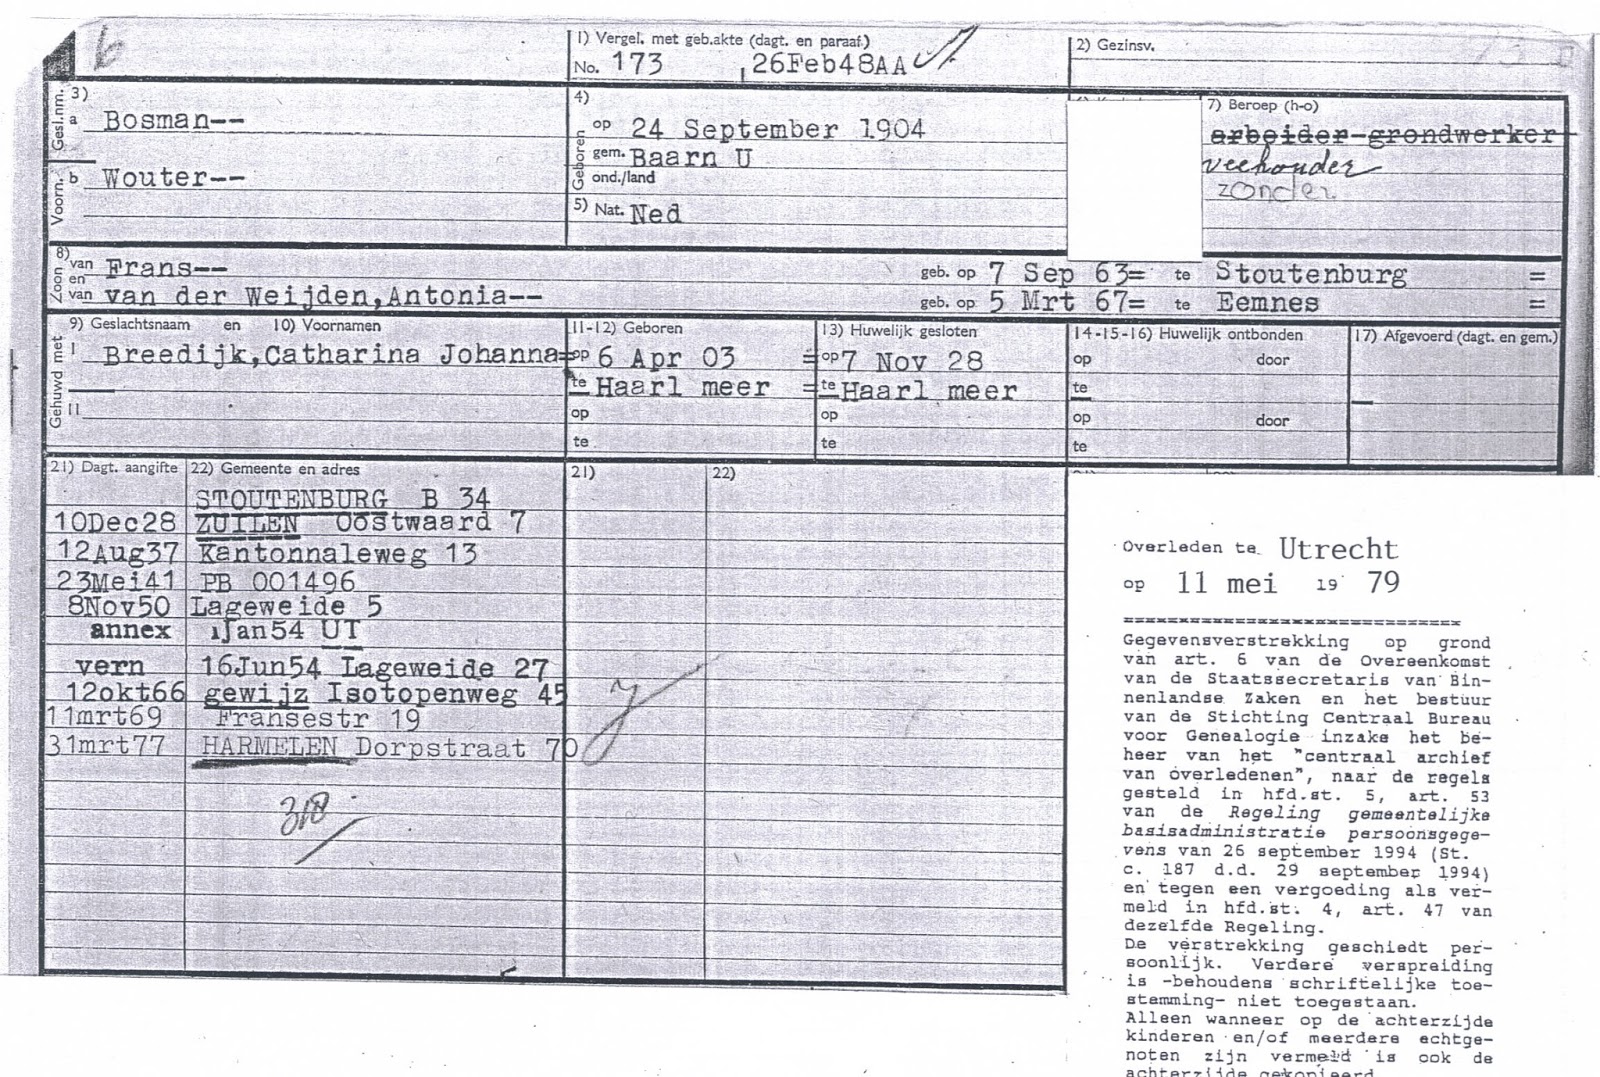 1) Vergel. met geb.akte (dagt. en paraaf.)
No. 173 26Feb48AA
2) Gezinsv.
Gesl.nm. 3)
a Bosman--
Voorn. b Wouter--
4)
Geboren op 24 September 1904
gem. Baarn U
ond./land
5) Nat. Ned
7) Beroep (h-o)
arbeider-grondwerker
veehouder
zonder
Zoon 8) van Frans-- geb. op 7 Sep 63= te Stoutenburg =
en
van van der Weijden,Antonia-- geb. op 5 Mrt 67= te Eemnes =
Gehuwd met 9) Geslachtsnaam en 10) Voornamen
11-12) Geboren
13) Huwelijk gesloten
14-15-16) Huwelijk ontbonden
17) Afgevoerd (dagt. en gem.)
I Breedijk,Catharina Johanna= op 6 Apr 03 = op 7 Nov 28 op door
te Haarl meer = te Haarl meer te
II op op op door
te te te
21) Dagt. aangifte 22) Gemeente en adres 21) 22)
STOUTENBURG B 34
10Dec28 ZUILEN Oostwaard 7
12Aug37 Kantonnaleweg 13
23Mei41 PB 001496
8Nov50 Lageweide 5
annex 1Jan54 UT
vern 16Jun54 Lageweide 27
12okt66 gewijz Isotopenweg 45
11mrt69 Fransestr 19
31mrt77 HARMELEN Dorpstraat 70
Overleden te Utrecht
op 11 mei 19 79
==============================
Gegevensverstrekking op grond
van art. 6 van de Overeenkomst
van de Staatssecretaris van Bin-
nenlandse Zaken en het bestuur
van de Stichting Centraal Bureau
voor Genealogie inzake het be-
heer van het "centraal archief
van overledenen", naar de regels
gesteld in hfd.st. 5, art. 53
van de Regeling gemeentelijke
basisadministratie persoonsgege-
vens van 26 september 1994 (St.
c. 187 d.d. 29 september 1994)
en tegen een vergoeding als ver-
meld in hfd.st. 4, art. 47 van
dezelfde Regeling.
De verstrekking geschiedt per-
soonlijk. Verdere verspreiding
is -behoudens schriftelijke toe-
stemming- niet toegestaan.
Alleen wanneer op de achterzijde
kinderen en/of meerdere echtge-
noten zijn vermeld is ook de
achterzijde gekopieerd.